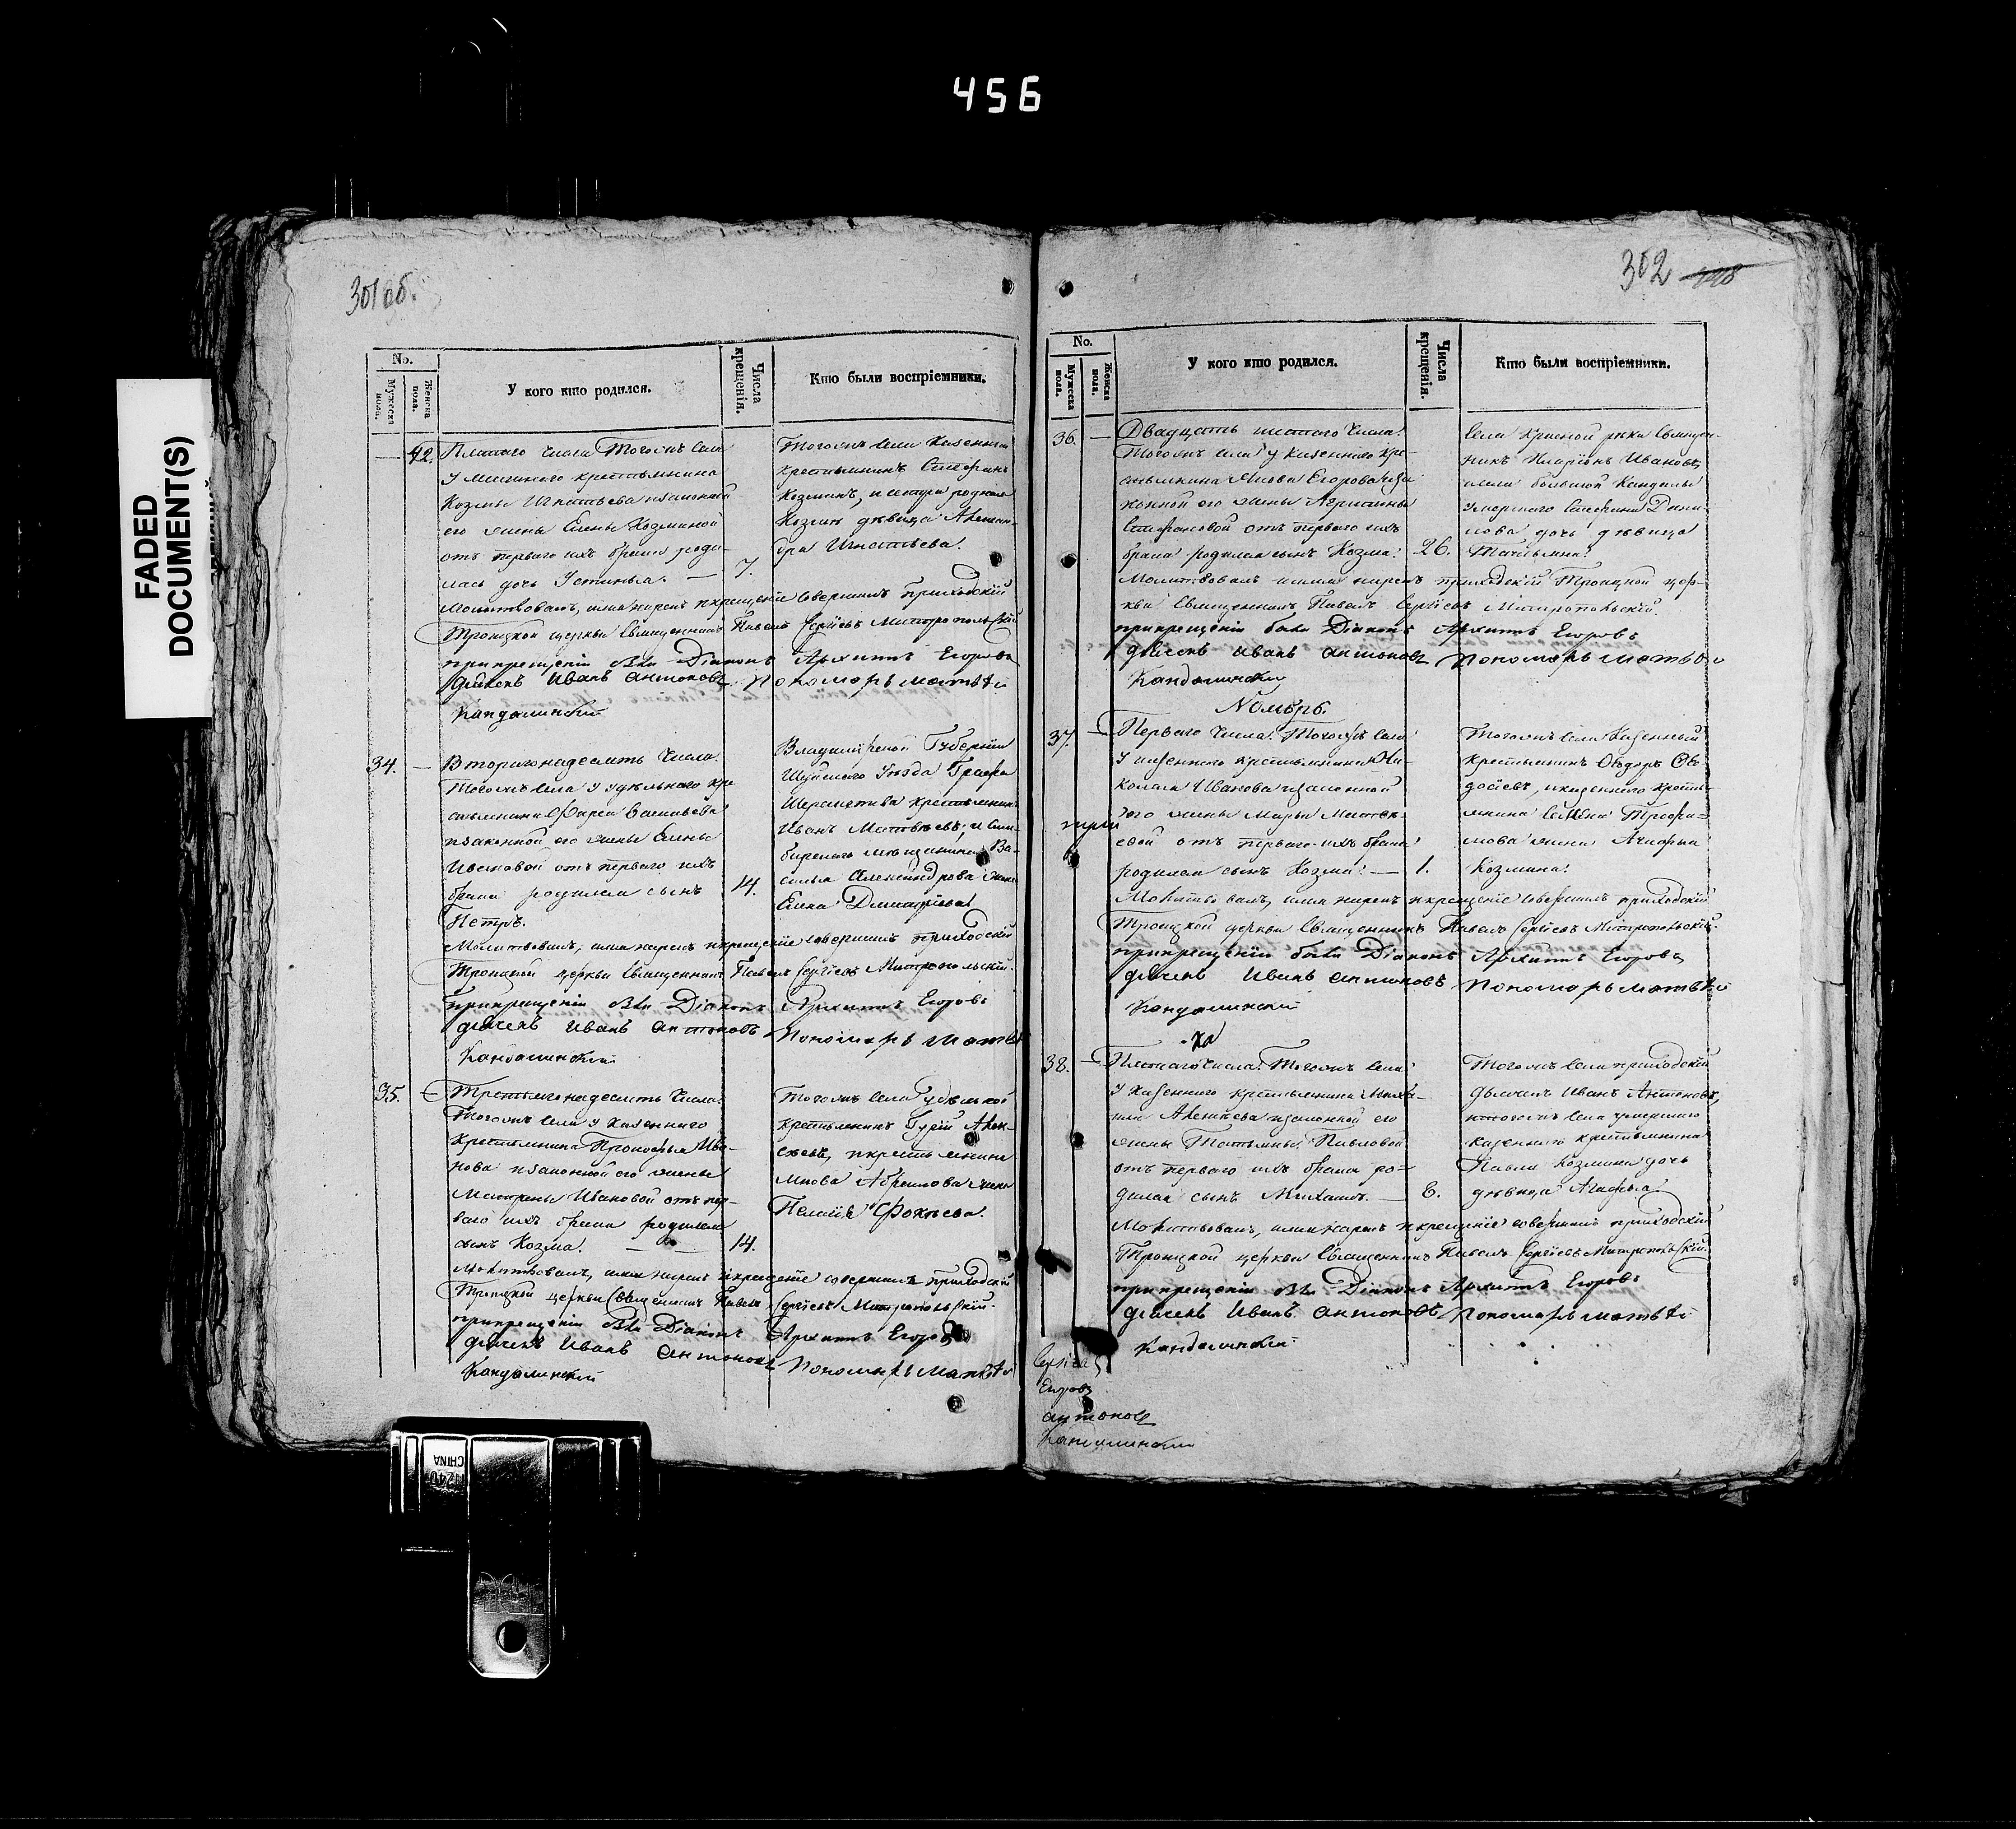 456
FADED
DOCUMENT(S)
301 об.
No.
Мужеска пола.
Женска пола.
У кого кто родился.
Числа крещенія.
Кто были воспріемники.
42. Пятаго числа Тогожъ села
У крестьянина
Козмы Игнатьева изаконной
его жены Елены Козминой
отъ перваго ихъ брака роди-
лась дочь Устинья. — 7.
Тогожъ села Казенный
крестьянинъ Стефанъ
Козминъ, и
Козмы дѣвица Алексан-
дра Игнатьева.
Молитвовалъ, имя нарекъ икрещеніе совершилъ приходскій
Троицкой церкви Священникъ Павелъ Сергіевъ Митропольскій
прикрещеніи были Діаконъ Архипъ Егоровъ
дьячекъ Иванъ Антоновъ Пономарь матвѣй
Кандалинскій
34. — Второгонадесять числа.
Тогожъ села у удѣльнаго кре
стьянина Васильева
изаконной его жены
отъ перваго ихъ
брака родился сынъ 14.
Петръ.
Владимірской Губерніи
Шуйскаго Уѣзда Графа
Шереметева крестьянинъ
Иванъ Матвѣевъ, и Сим-
бирскаго мѣщанина Ва-
силья Александрова жена
Елена Дмитріева
Молитвовалъ, имя нарекъ икрещеніе совершилъ приходскій
Троицкой церкви Священникъ Павелъ Сергіевъ Митропольскій.
прикрещеніи были Діаконъ Архипъ Егоровъ
дьячекъ Иванъ Антоновъ Пономарь матвѣй
Кандалинскій
35. — Третьягонадесять числа.
Тогожъ села у казеннаго
крестьянина Прокофья Ива-
нова изаконной его жены
Матрены Ивановой отъ пер-
ваго ихъ брака родился
сынъ Козма. — — 14.
Тогожъ села удѣльной
крестьянинъ Гурій Алек-
сѣевъ, икрестьянина
Абрамова жена
Фокѣева.
Молитвовалъ, имя нарекъ икрещеніе совершилъ приходскій
Троицкой церкви Священникъ Павелъ Сергіевъ Митропольскій.
прикрещеніи были Діаконъ Архипъ Егоровъ
дьячекъ Иванъ Антоновъ Пономарь Матвѣй
Кандалинскій
302
No.
Мужеска пола.
Женска пола.
У кого кто родился.
Числа крещенія.
Кто были воспріемники.
36. — Двадцать шестаго числа.
Тогожъ села у казеннаго кре-
стьянина Якова Егорова иза
конной его жены
Стефановой отъ перваго ихъ
брака родился сынъ Козма. 26.
Села Красной рѣки Священ-
никъ Иларіонъ Ивановъ,
села большой Кандалы
умершаго Стефана Дани-
лова дочь дѣвица
Татьяна.
Молитвовалъ и имя нарекъ приходскій Троицкой цер-
кви Священникъ Павелъ Сергіевъ Митропольскій.
прикрещеніи были Діаконъ Архипъ Егоровъ
дьячекъ Иванъ Антоновъ Пономарь Матвѣй
Кандалинскій
Ноябрь.
37. — Перваго числа. Тогожъ села
У казеннаго крестьянина Ни-
колая Иванова изаконной
его жены Марьи Матвѣ-
евой отъ перваго ихъ брака
родился сынъ Козма. — 1.
Тогожъ села Казенный
крестьянинъ Ѳедоръ
иказеннаго кресть-
янина Трофи-
мова жена Агафья
Козмина.
Молитвовалъ, имя нарекъ икрещеніе совершилъ приходскій
Троицкой церкви Священникъ Павелъ Сергіевъ Митропольскій.
прикрещеніи были Діаконъ Архипъ Егоровъ
дьячекъ Иванъ Антоновъ Пономарь Матвѣй
Кандалинскій
38. — Пятаго числа. Тогожъ села
У казеннаго крестьянина Миха-
Алексѣева изаконной его
жены Татьяны Павловой
отъ перваго ихъ брака ро-
дился сынъ Михаилъ. —
Тогожъ села приходскій
дьячекъ Иванъ Антоновъ,
итогожъ села умершаго
казеннаго крестьянина
Павла Козмина дочь
дѣвица Агафья
Молитвовалъ, имя нарекъ икрещеніе совершилъ приходскій
Троицкой церкви Священникъ Павелъ Сергіевъ Митропольскій.
прикрещеніи были Діаконъ Архипъ Егоровъ
дьячекъ Иванъ Антоновъ Пономарь матвѣй
Кандалинскій
Егоровъ
Антоновъ
Кандалинскій
CHINA